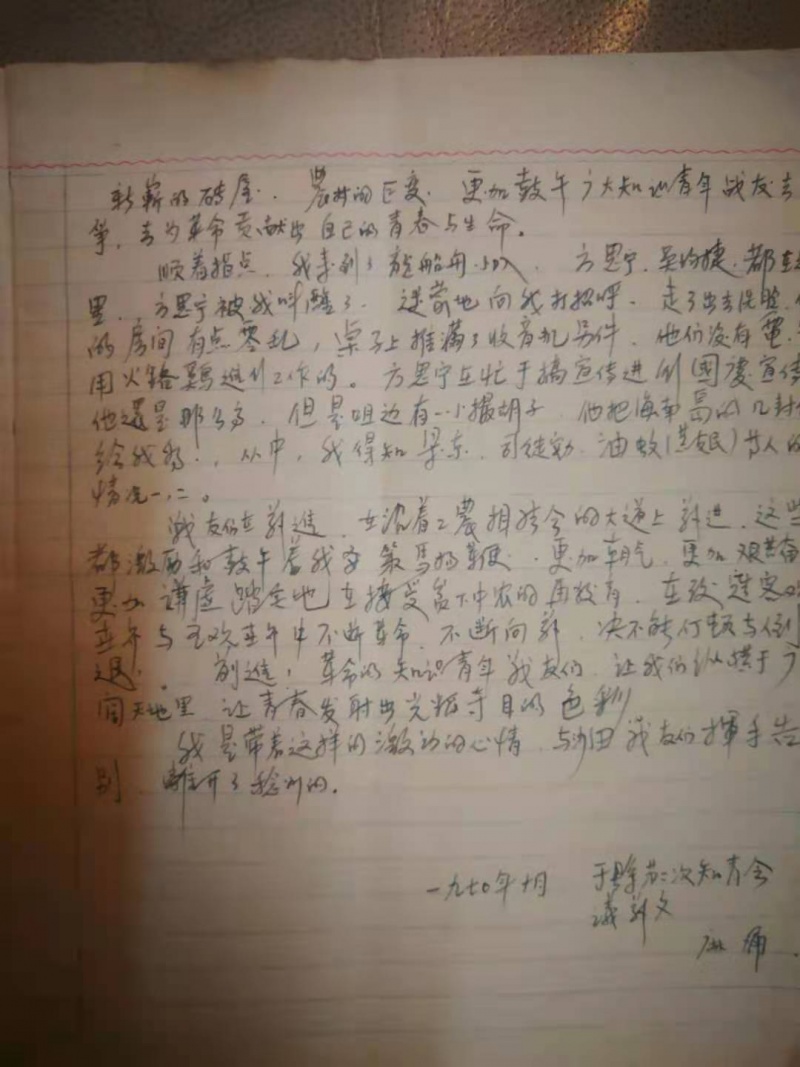 新薪的砖屋. 農村的巨变. 更加鼓午广大知识青年战友去
争，去为革命贡献出自己的青春与生命。
顺着指点，我来到了 船舟小队，方思宁，吴 捷，都在
里，方思宁被我叫醒了. 地向我打招呼. 走了出去洗脸，
的房间有点零乱，桌子上推满了收音机另件，他们没有電，
用火铬 进行工作的。方思宁正忙于搞宣传进 国慶宣传
他還是那么 ，但是咀边有一小撮胡子，他把海南 的几封
给我看.，从中，我得知梁东，司徒 ，油蚊( )等人的
情况一,二。
战友们在前進，在沿着工農相结合的大道上前进，这些
都激励和鼓午着我 策馬扬鞭，更加朝气，更加艰苦奋
更加谦虚踏实地在接受贫下中农的再教育，在改造客观
世界与主观世界中不断革命，不断向前，决不能停顿与倒
退. 前進！革命的知识青年战友们，让我们纵横于广
阔天地里 让青春发射出光 夺目的色彩
我是带着这样的激动的心情，与沙田战友们揮手告
别，離开了 的.
一九七0年十月 于 次知青会
議前文